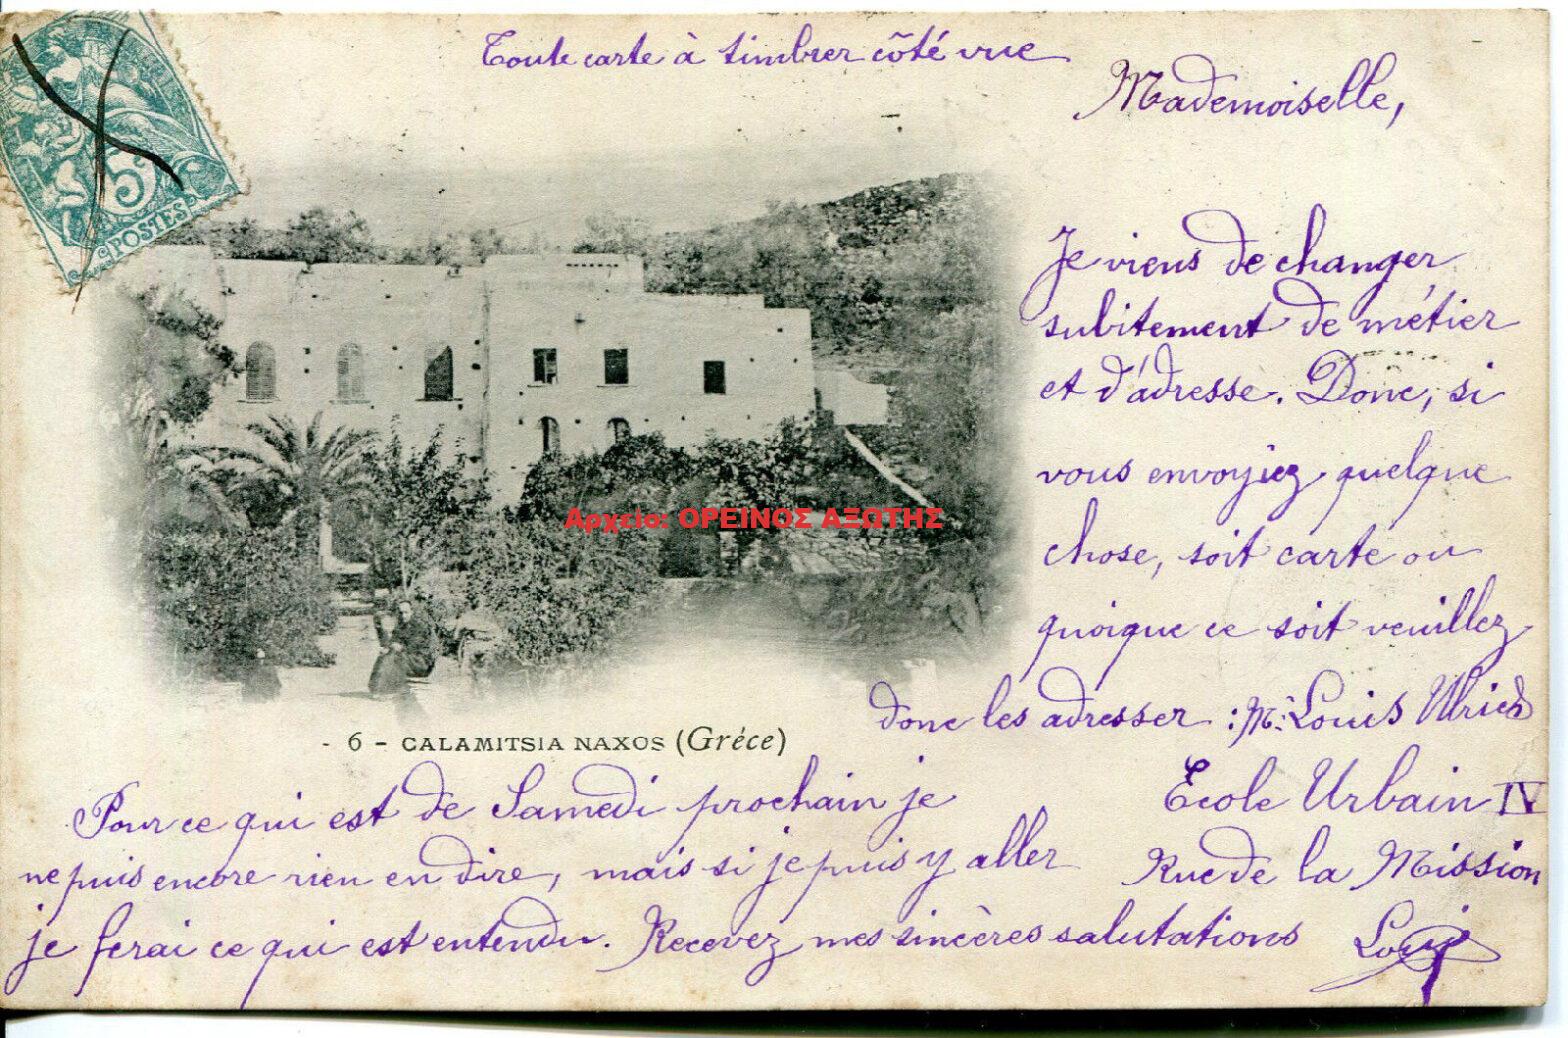 Toute carte à timbrer côté vue
5
POSTES
Mademoiselle,
Je viens de changer
subitement de métier
et d'adresse. Donc, si
vous envoyiez quelque
chose, soit carte ou
quoique ce soit veuillez
donc les adresser : Mr. Louis Ulrich
Ecole Urbain IV
Rue de la Mission
Αρχείο: ΟΡΕΙΝΟΣ ΑΞΩΤΗΣ
- 6 - CALAMITSIA NAXOS (Gréce)
Pour ce qui est de Samedi prochain je
ne puis encore rien en dire, mais si je puis y aller
je ferai ce qui est entendu. Recevez mes sincères salutations
Louis